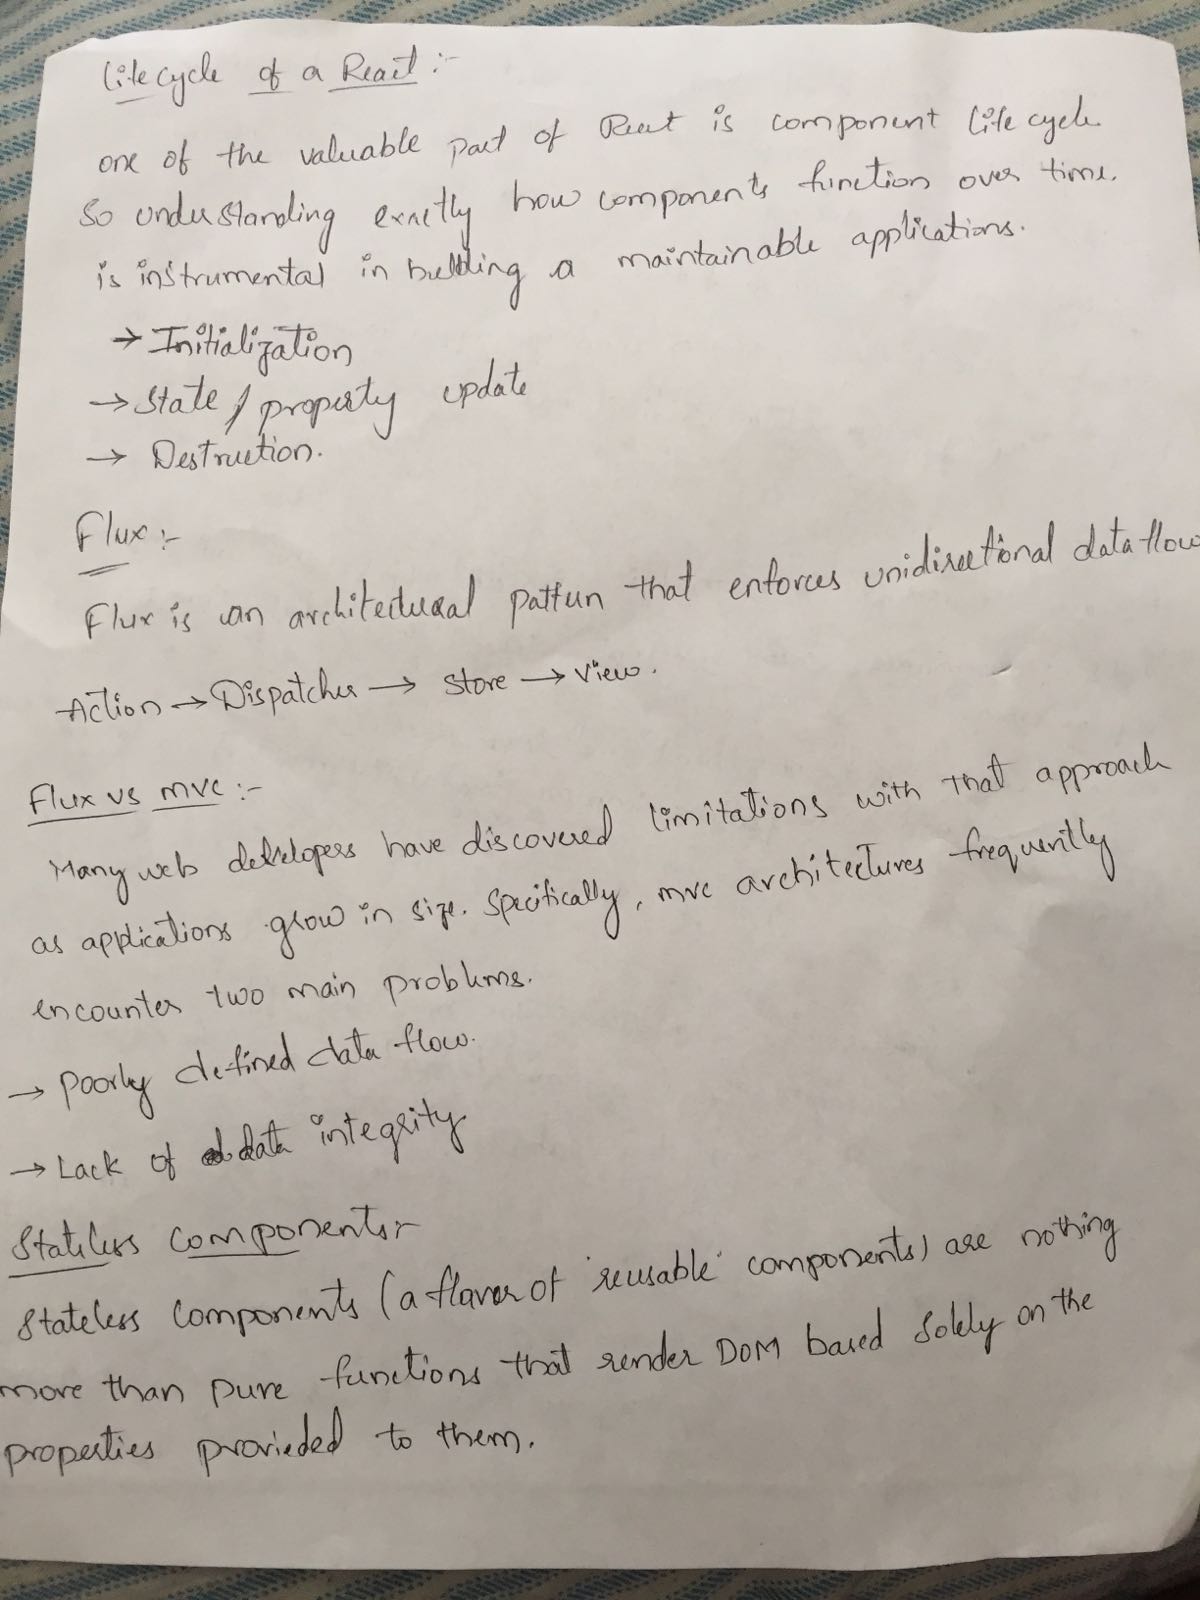 Lifecycle of a React :-
one of the valuable part of React is component life cycle
So understanding exactly how components function over time.
is instrumental in building a maintainable applications.
→ Initialization
→ State / property update
→ Destruction.
Flux :-
Flux is an architectural pattern that enforces unidirectional data flow
Action → Dispatcher → Store → View.
Flux vs mvc :-
Many web developers have discovered limitations with that approach
as applications grow in size. Specifically, mvc architectures frequently
encounter two main problems.
→ Poorly defined data flow.
→ Lack of data integrity
Stateless Components:-
Stateless Components (a flavor of 'reusable' components) are nothing
more than pure functions that render DOM based solely on the
properties provieded to them.